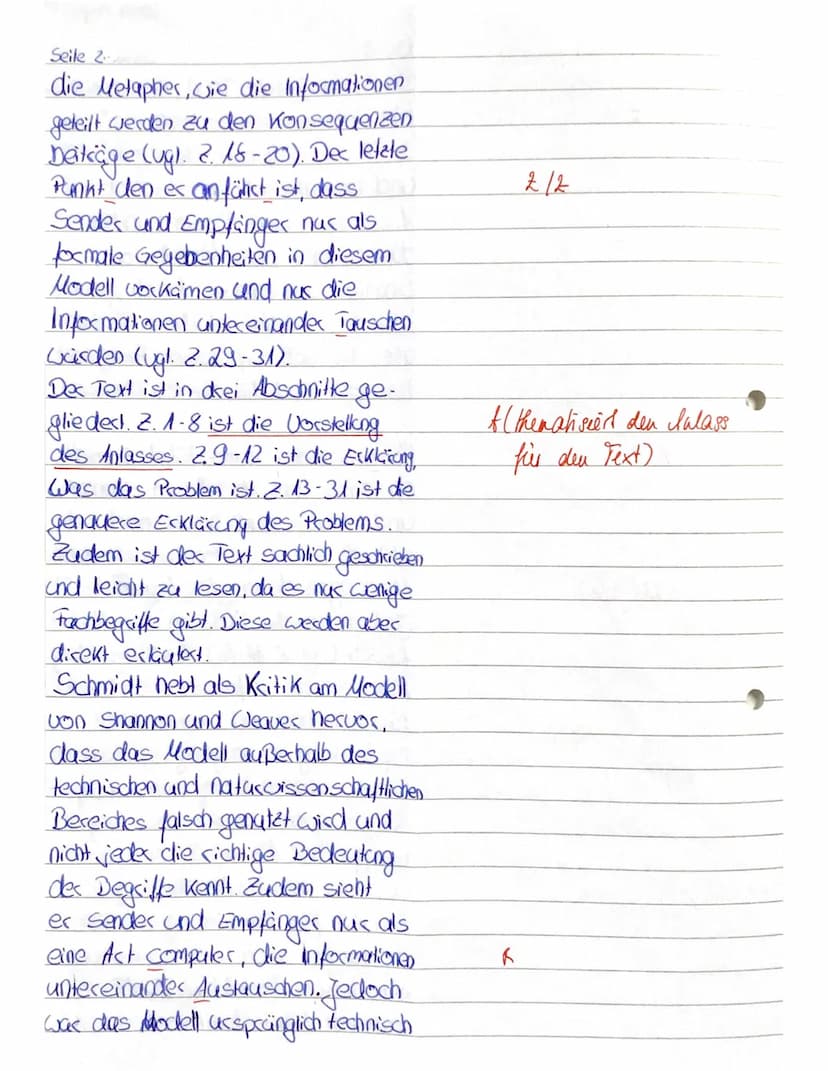 Seite 2.
die Metapher, wie die Informationen
geteilt werden zu den Konsequenzen
beiträge (vgl. Z. 18-20). Der letzte
Punkt den er anführt ist, dass
Z/Z
Sender und Empfänger nur als
formale Gegebenheiten in diesem
Modell vorkämen und nur die
Informationen untereinander Tauschen
würden (vgl. Z. 29-31).
Der Text ist in drei Abschnitte ge-
gliedert. Z. 1-8 ist die Vorstellung
A (thematisiert den Anlass
des Anlasses. Z. 9-12 ist die Erklärung,
für den Text)
Was das Problem ist. Z. 13-31 ist die
genauere Erklärung des Problems.
Zudem ist der Text sachlich geschrieben
und leicht zu lesen, da es nur wenige
Fachbegriffe gibt. Diese werden aber
direkt erläutert.
Schmidt hebt als Kritik am Modell
von Shannon und Weaver hervor,
dass das Modell außerhalb des
technischen und naturwissenschaftlichen
Bereiches falsch genutzt wird und
nicht jeder die richtige Bedeutung
der Begriffe kennt. Zudem sieht
er Sender und Empfänger nur als
eine Art computer, die Informationen
R
untereinander Austauschen. Jedoch
war das Modell ursprünglich technisch